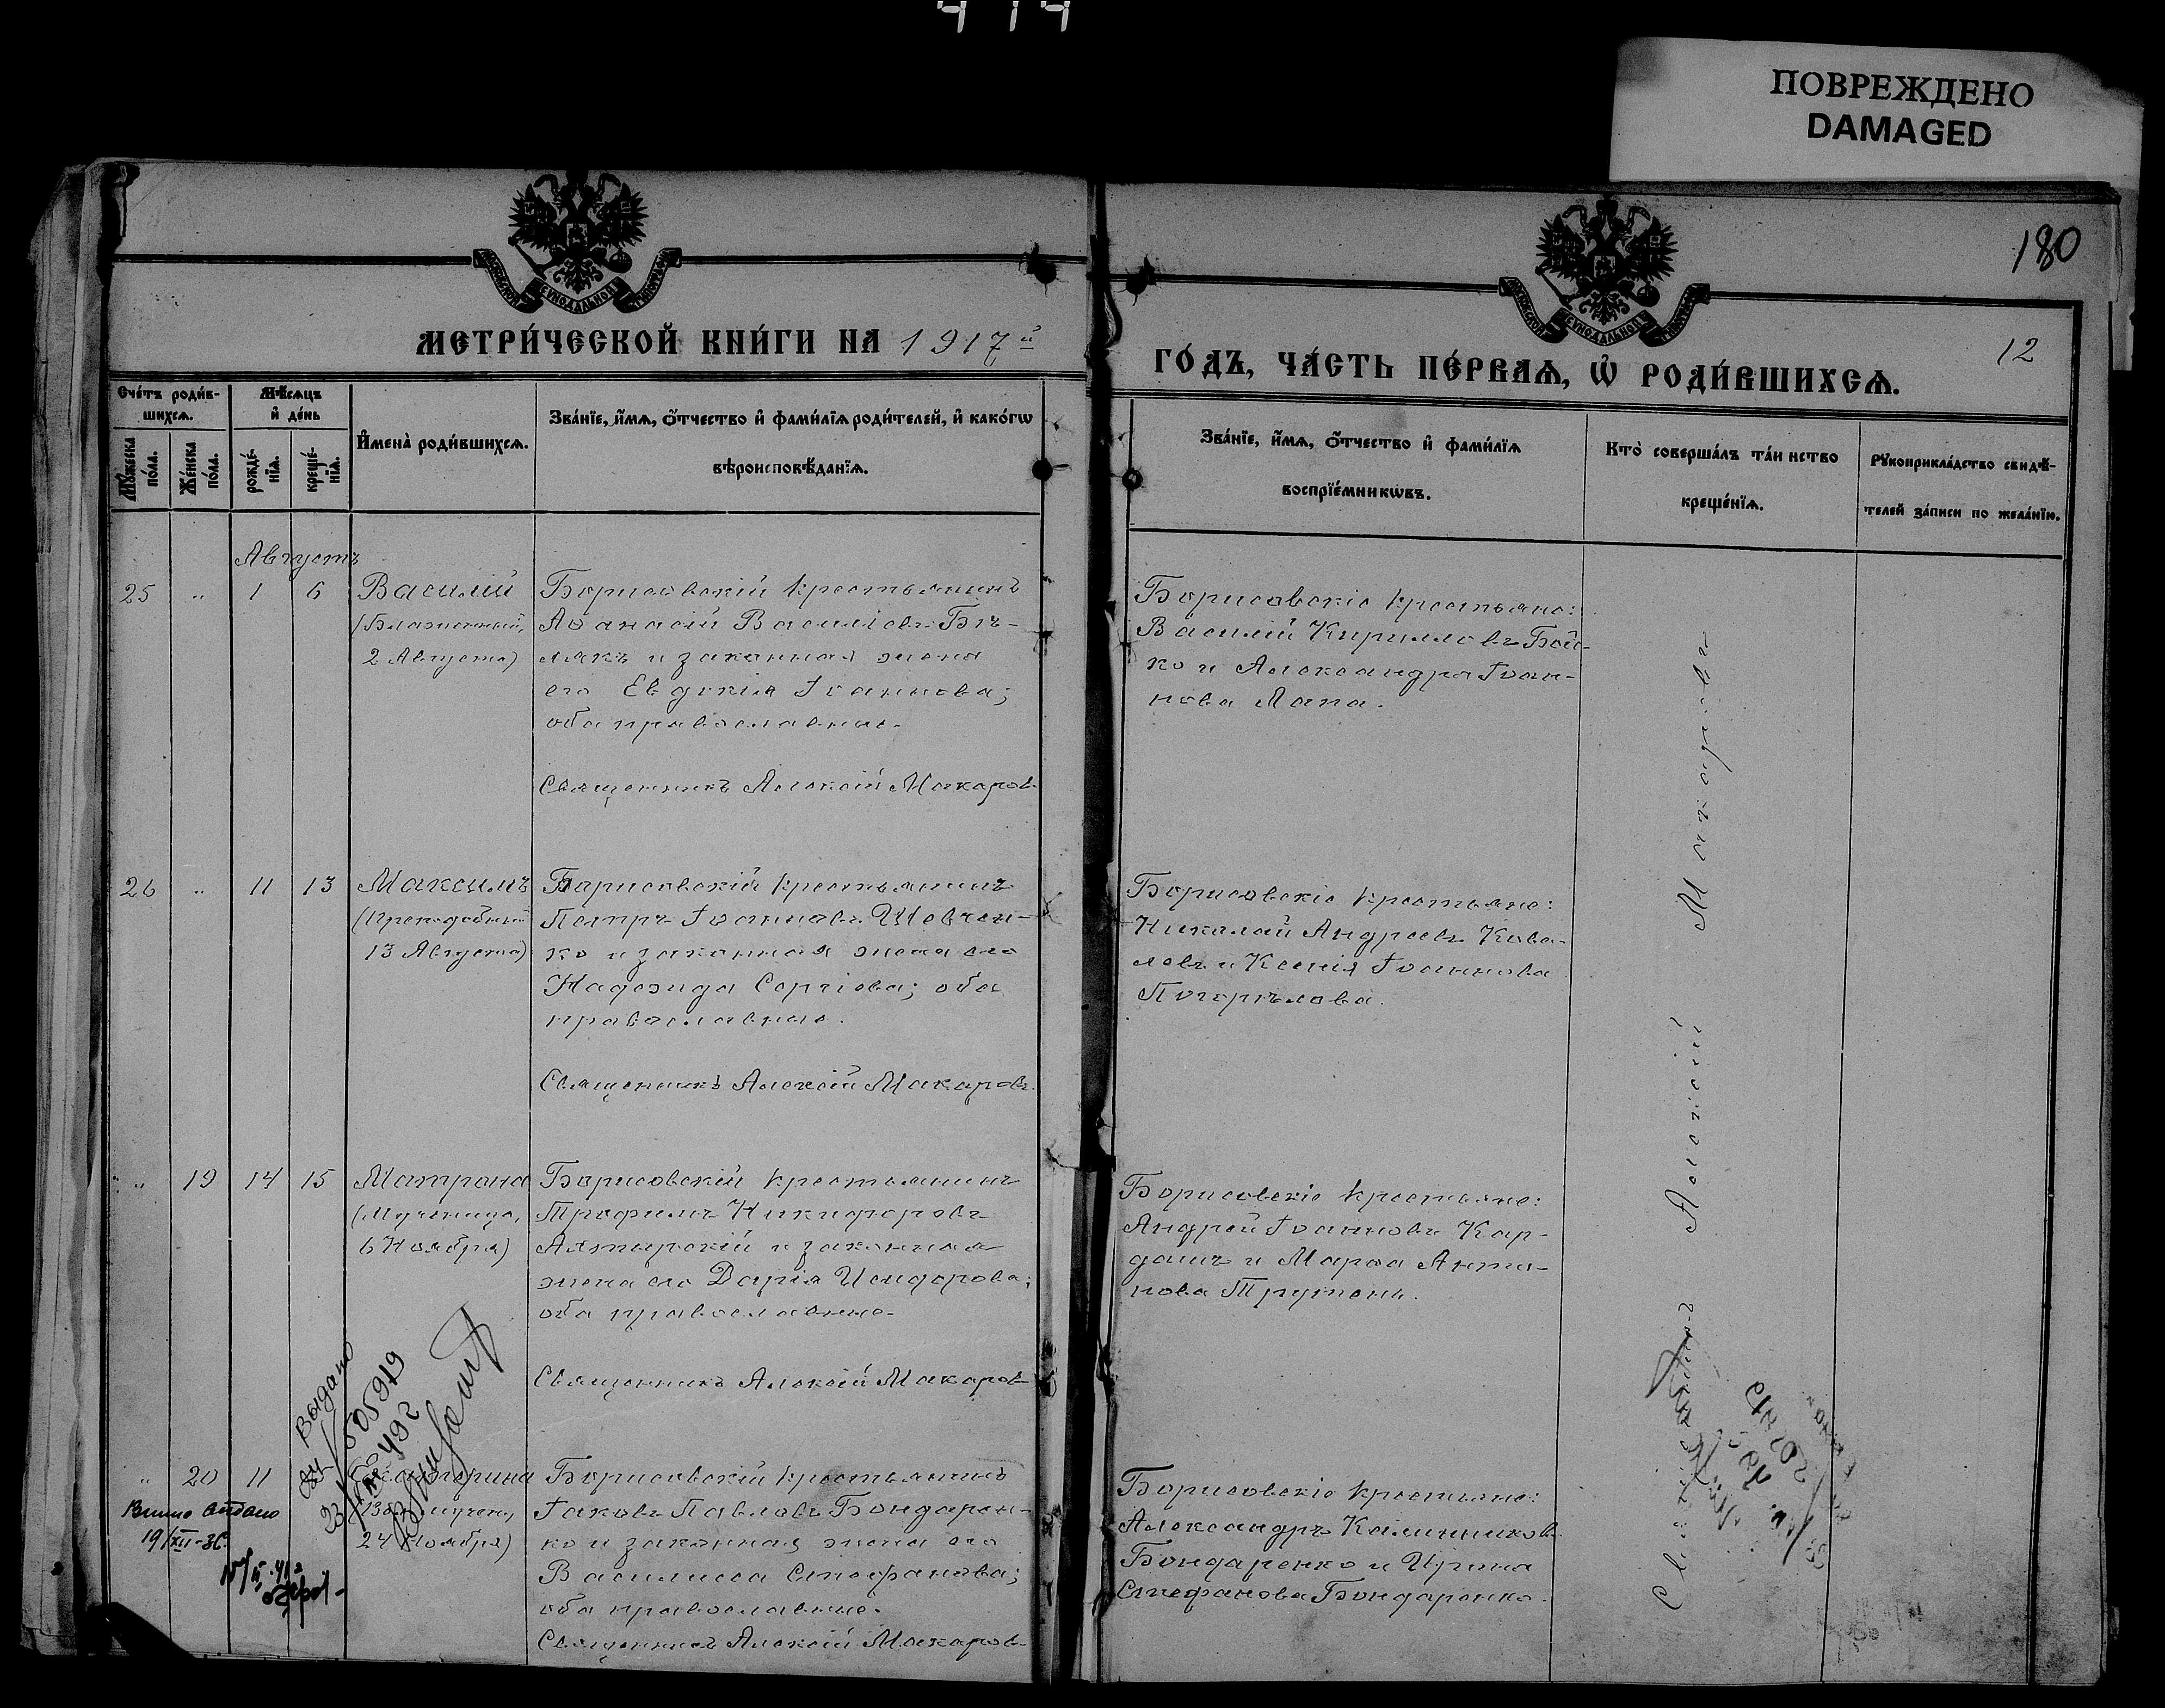 414
ПОВРЕЖДЕНО
DAMAGED
МЕТРИ́ЧЕСКОЙ КНИ́ГИ НА 1917й
180
12
ГО́ДЪ, ЧА́СТЬ ПЕ́РВАѦ, Ѡ҆ РОДИ́ВШИХСѦ.
Сче́тъ роди́в-
шихсѧ.
Мѣ́сѧцъ
и҆ де́нь
Мꙋ́жеска
по́ла.
Же́нска
по́ла.
рожде́-
нїѧ.
креще́-
нїѧ.
И҆мена̀ роди́вшихсѧ.
Зва́нїе, и҆́мѧ, ѻ҆́тчество и҆ фами́лїѧ роди́телей, и҆ како́гѡ
вѣроисповѣ́данїѧ.
Зва́нїе, и҆́мѧ, ѻ҆́тчество и҆ фами́лїѧ
воспрїе́мникѡвъ.
Кто̀ соверша́лъ та́инство
креще́нїѧ.
Рꙋкоприкла́дство свидѣ́-
телей за́писи по жела́нїю.
Августъ
25 " 1 6
Василій
(Блаженный,
2 Августа)
Борисовскій крестьянинъ
Аѳанасій Василіевъ Бѣ-
лякъ и законная жена
его Евдокія Іоаннова;
оба православные.
Священникъ Алексій Макаровъ
Борисовскіе крестьяне:
Василій Кирилловъ Бой-
ко и Александра Іоан-
нова Лапа.
26 " 11 13
Максимъ
(Преподобный
13 Августа)
Борисовскій крестьянинъ
Петръ Іоанновъ Шевчен-
ко и законная жена его
Надежда Сергіева; оба
православные.
Священникъ Алексій Макаровъ.
Борисовскіе крестьяне:
Николай Андреевъ Кова-
левъ и Ксенія Іоаннова
Погорѣлова.
" 19 14 15
Матрона
(Мученица,
6 Ноября)
Борисовскій крестьянинъ
Трофимъ Никифоровъ
Алтырскій и законная
жена его Дарія Исидорова;
оба православные.
Священникъ Алексій Макаровъ
Борисовскіе крестьяне:
Андрей Іоанновъ Кар-
дашъ и Марѳа Анто-
нова Трутень.
" 20 11
Екатерина
24 Ноября)
Борисовскій крестьянинъ
Іаковъ Павловъ Бондарен-
ко и законная жена его
Василисса Стефанова;
оба православные.
Священникъ Алексій Макаровъ
Борисовскіе крестьяне:
Александръ Калинниковъ
Бондаренко и Ирина
Стефанова Бондаренко.
Священникъ Алексій Макаровъ
Выдано
505949
19/XII-36